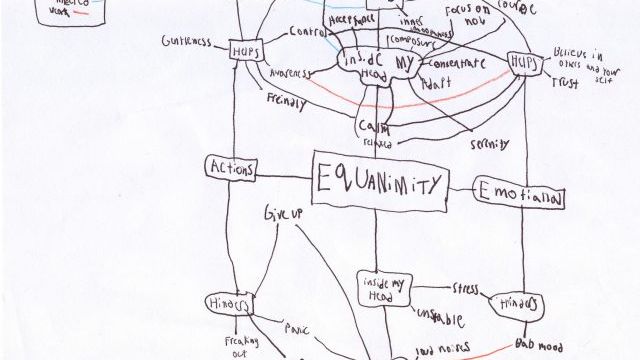 Helps
Gentleness
Control
Acceptance
inner
composure
Focus on
now
course
inside MY
Head
concentrate
Adapt
Awareness
Freindly
Calm
relaxed
serenity
HELPS
Believe in
others and your
self
Trust
Actions
EQUANIMITY
Emotional
Give up
inside my
Head
stress
unstable
Hinders
Hinders
Freaking
out
Panic
loud noises
Bad mood